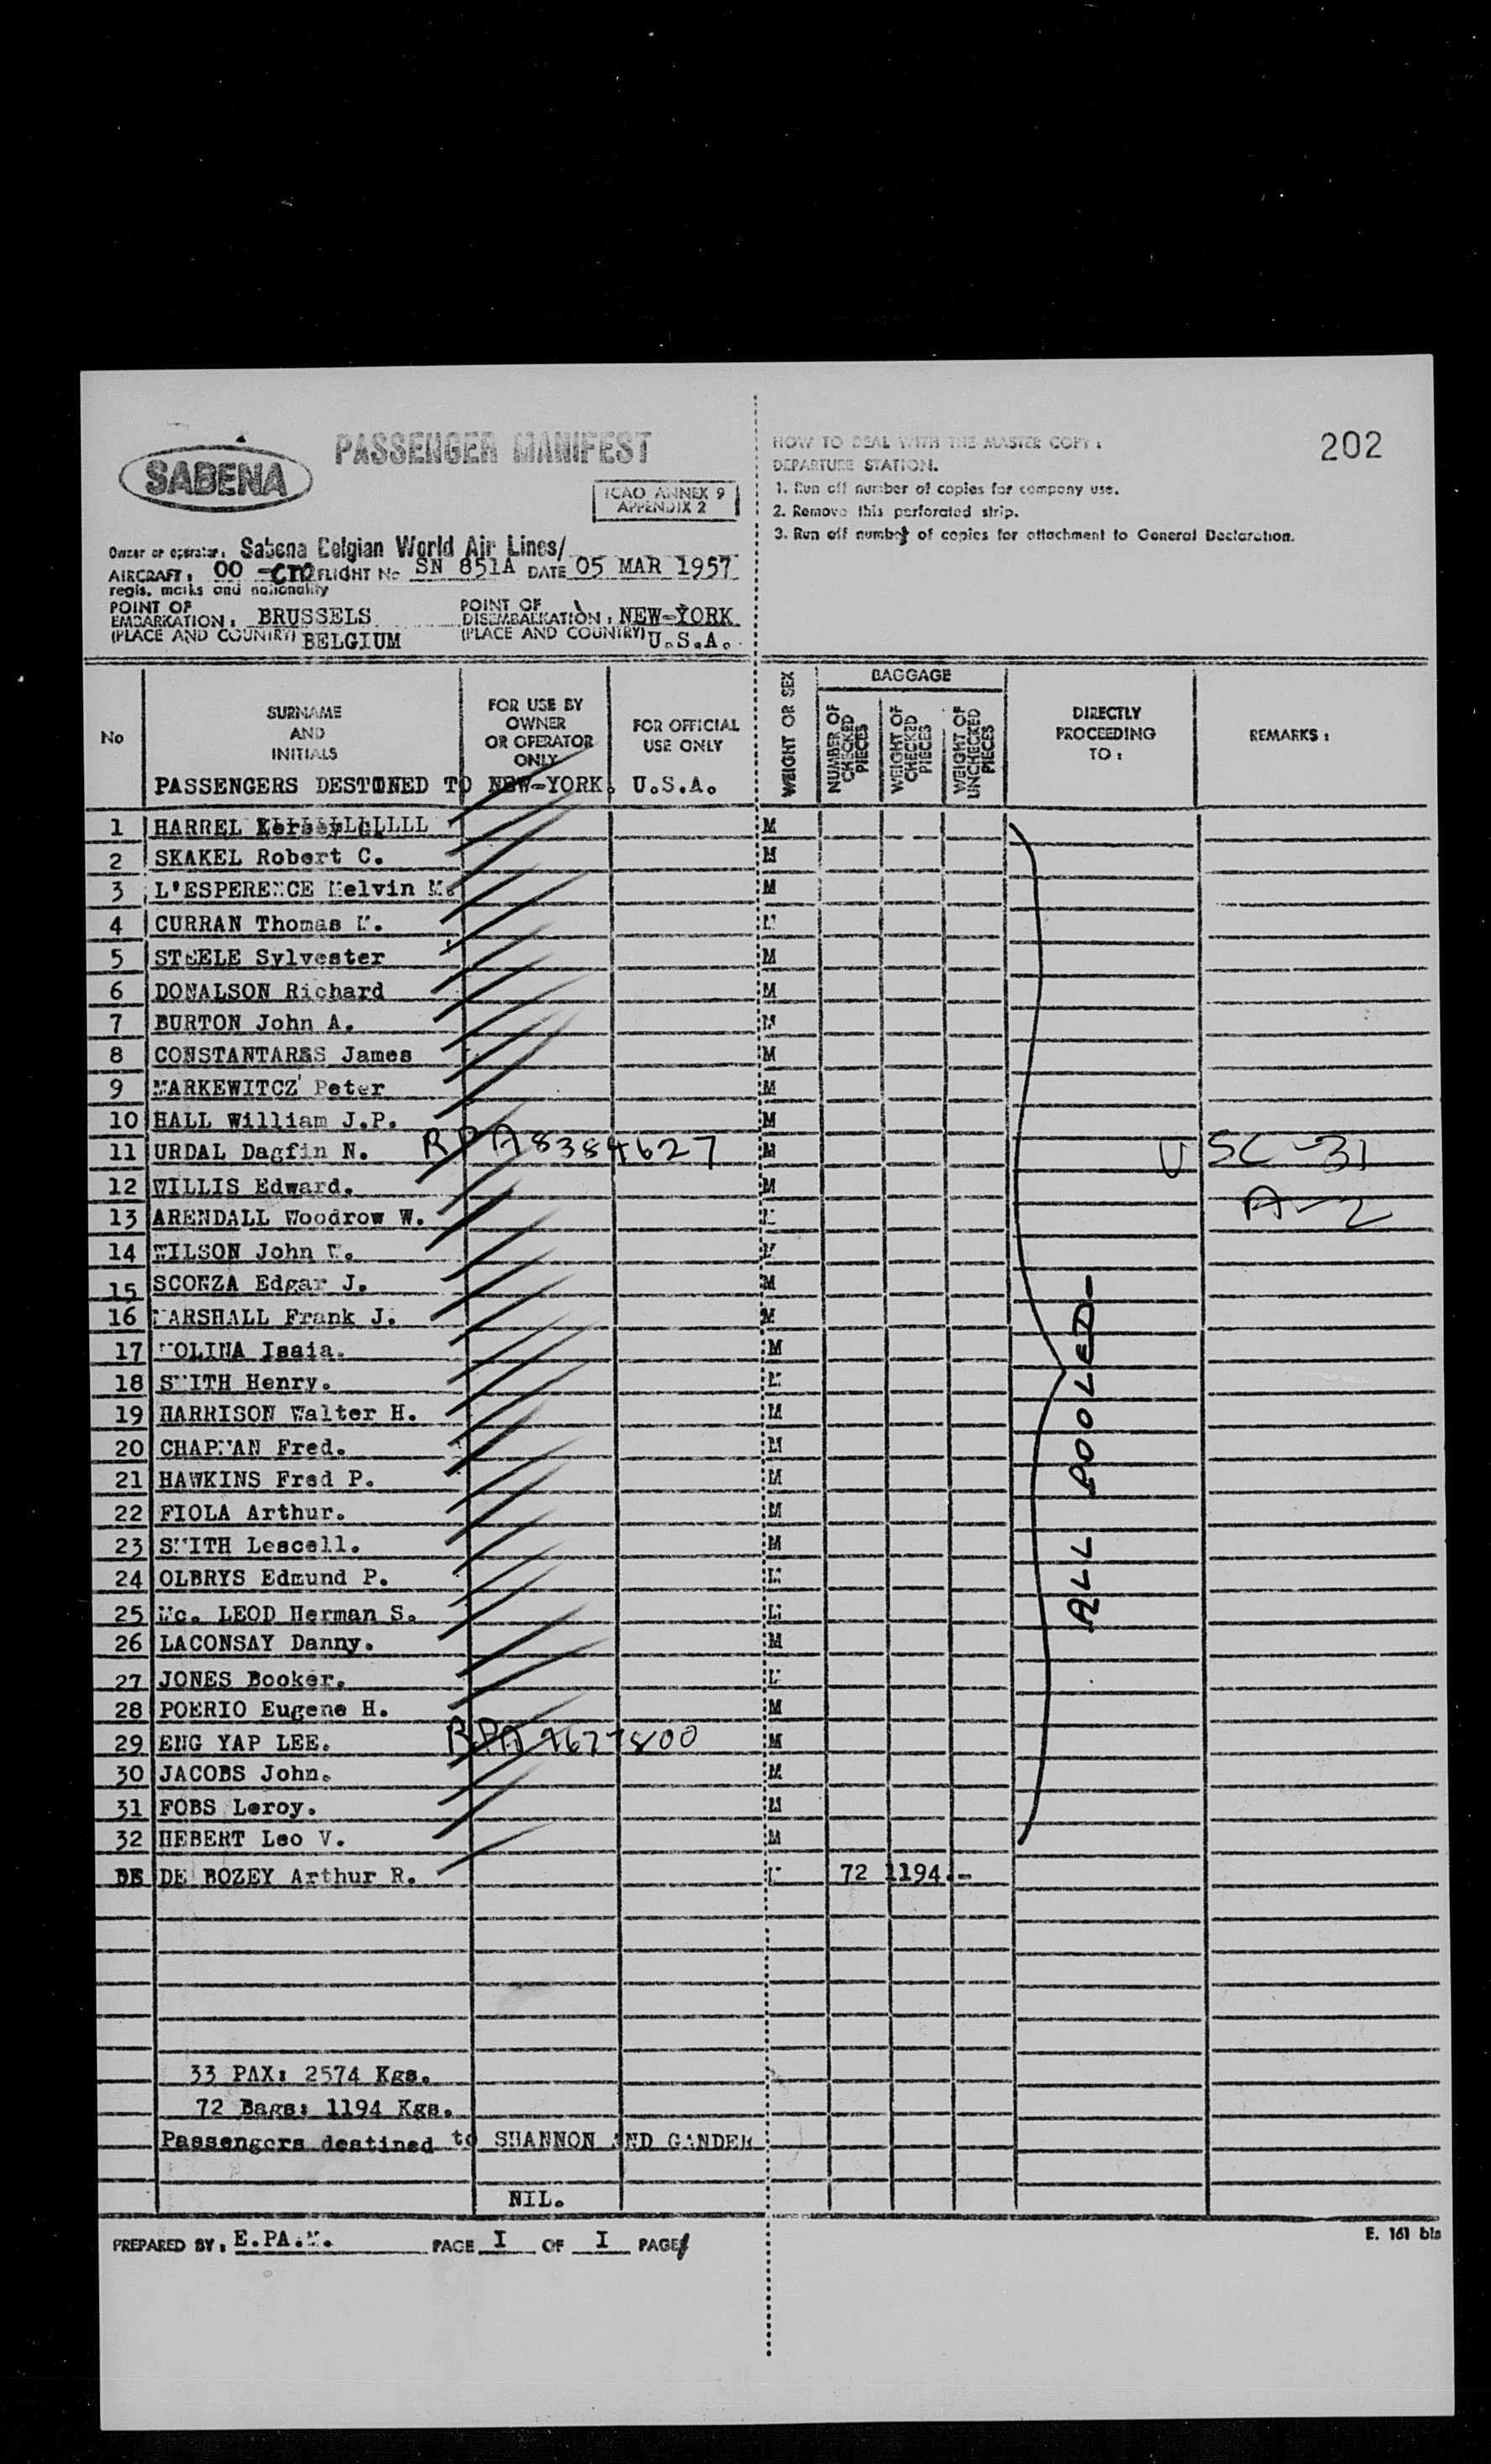 SABENA
PASSENGER MANIFEST
ICAO ANNEX 9
APPENDIX 2
Owner or operator: Sabena Belgian World Air Lines/
AIRCRAFT: OO -CTO FLIGHT No SN 851A DATE 05 MAR 1957
regis. marks and nationality
POINT OF EMBARKATION: BRUSSELS
(PLACE AND COUNTRY) BELGIUM
POINT OF DISEMBARKATION: NEW-YORK
(PLACE AND COUNTRY) U.S.A.
HOW TO DEAL WITH THE MASTER COPY:
DEPARTURE STATION.
1. Run off number of copies for company use.
2. Remove this perforated strip.
3. Run off number of copies for attachment to General Declaration.
202
No
SURNAME AND INITIALS
FOR USE BY OWNER OR OPERATOR ONLY
FOR OFFICIAL USE ONLY
WEIGHT OR SEX
BAGGAGE
NUMBER OF CHECKED PIECES
WEIGHT OF CHECKED PIECES
WEIGHT OF UNCHECKED PIECES
DIRECTLY PROCEEDING TO:
REMARKS:
PASSENGERS DESTINED TO NEW-YORK. U.S.A.
1 HARREL M
2 SKAKEL Robert C. M
3 L'ESPERENCE Melvin M. M
4 CURRAN Thomas M
5 STEELE Sylvester M
6 DONALSON Richard M
7 BURTON John A. M
8 CONSTANTARES James M
9 MARKEWITCZ Peter M
10 HALL William J.P. M
11 URDAL Dagfin N. RPA 8384627 M USC-31
12 WILLIS Edward. M A-2
13 ARENDALL Woodrow W. M
14 WILSON John W. M
15 SCONZA Edgar J. M
16 MARSHALL Frank J. M
17 MOLINA Isaia. M
18 SMITH Henry. M
19 HARRISON Walter H. M
20 CHAPMAN Fred. M
21 HAWKINS Fred P. M
22 FIOLA Arthur. M
23 SMITH Lescell. M
24 OLBRYS Edmund P. M
25 Mc. LEOD Herman S. M
26 LACONSAY Danny. M
27 JONES Booker. M
28 POERIO Eugene H. M
29 ENG YAP LEE. RPA 7677800 M
30 JACOBS John. M
31 FOBS Leroy. M
32 HEBERT Leo V. M
DE BOZEY Arthur R. M 72 1194.-
ALL POOLED-
33 PAX: 2574 Kgs.
72 Bags: 1194 Kgs.
Passengers destined to SHANNON AND GANDER
NIL.
PREPARED BY: E.PA.M. PAGE I OF I PAGE
E. 161 bis